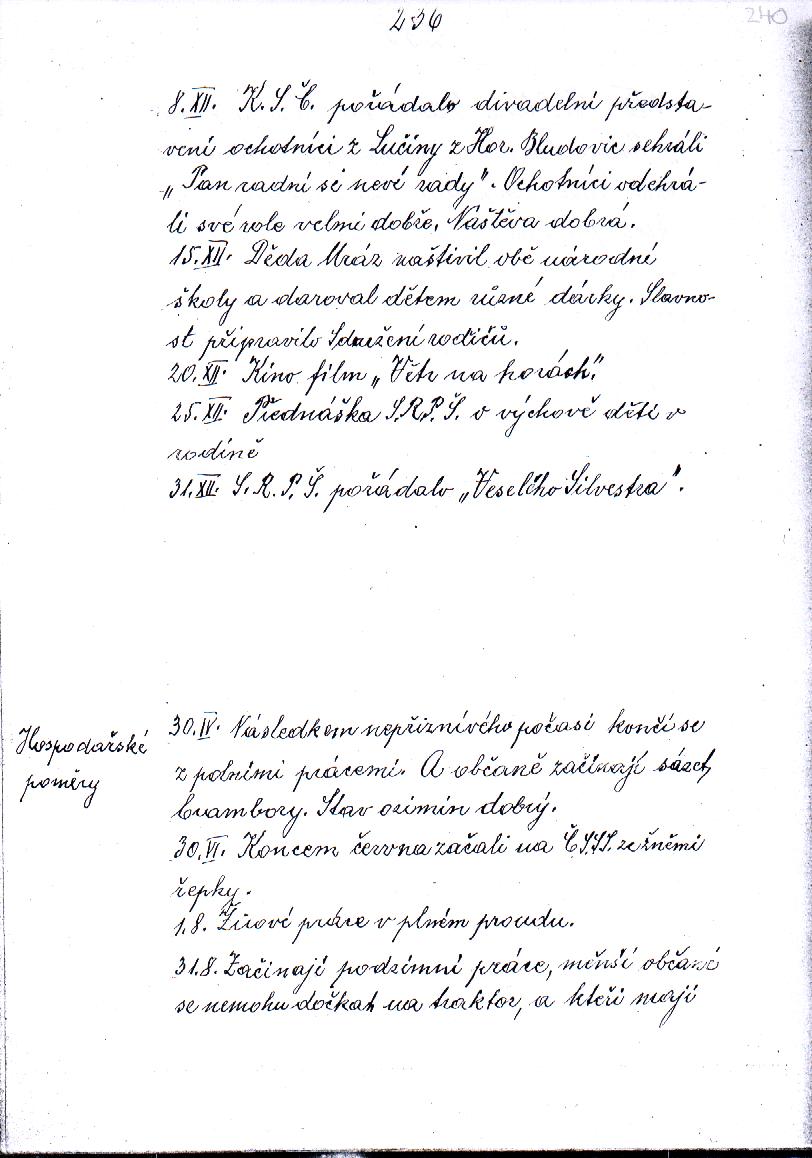 236
240
8.XII. K.S.Č. pořádalo divadelní předsta-
vení ochotníci z Lučiny z Hor. Bludovic sehráli
„Pan radní si neví rady". Ochotníci odehrá-
li své role velmi dobře. Náštěva dobrá.
15.XII. Děda Mráz naštivil obě národní
školy a daroval dětem různé dárky. Slavno-
st připravilo Sdružení rodičů.
20.XII. Kino film „Větr na horách".
25.XII. Přednáška S.R.P.Š. o výchově dětí v
rodině
31.XII. S.R.P.Š. pořádalo „Veselého Silvestra".
Hospodářské
poměry
30.IV. Následkem nepříznívého počasí končí se
z polními prácemi. A občané začínají sázet
brambory. Stav ozimin dobrý.
30.VI. Koncem června začali na ČSSS. ze žněmi
řepky.
1.8. Žňové práce v plném proudu.
31.8. Začínají podzimní práce, měnší občané
se nemohu dočkat na traktor, a kteří mají